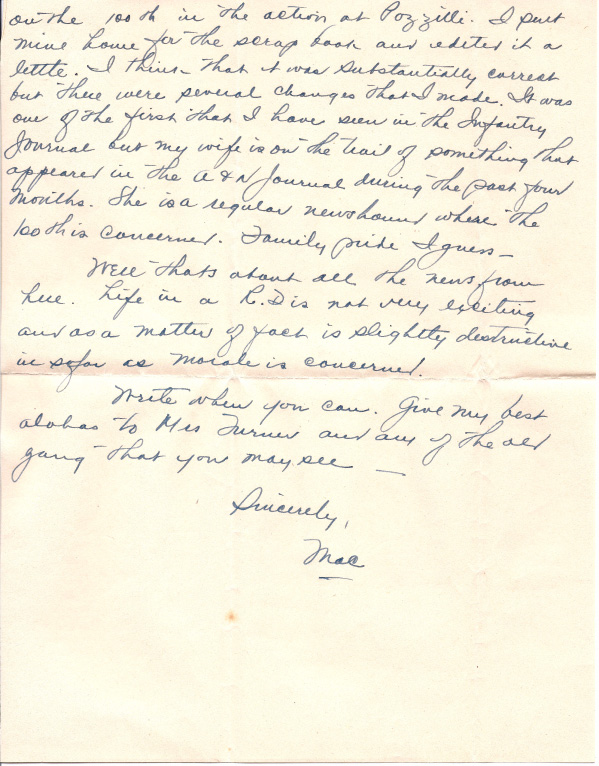 on the 100th in the action at Pozzilli. I sent
mine home for the scrap book and edited it a
little. I think that it was substantially correct
but there were several changes that I made. It was
one of the first that I have seen in the Infantry
Journal but my wife is on the trail of something that
appeared in the A & N Journal during the past four
months. She is a regular newshound where the
100th is concerned. Family pride I guess —
Well thats about all the news from
here. Life in a R.D is not very exciting
and as a matter of fact is slightly destructive
in sofar as morale is concerned.
Write when you can. Give my best
alohas to Mrs Turner and any of the old
gang that you may see —
Sincerely,
Mac